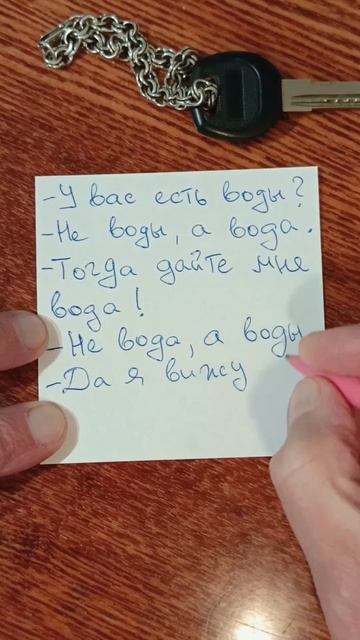 -У вас есть воды?
-Не воды, а вода.
-Тогда дайте мне
вода!
-Не вода, а воды
-Да я вижу